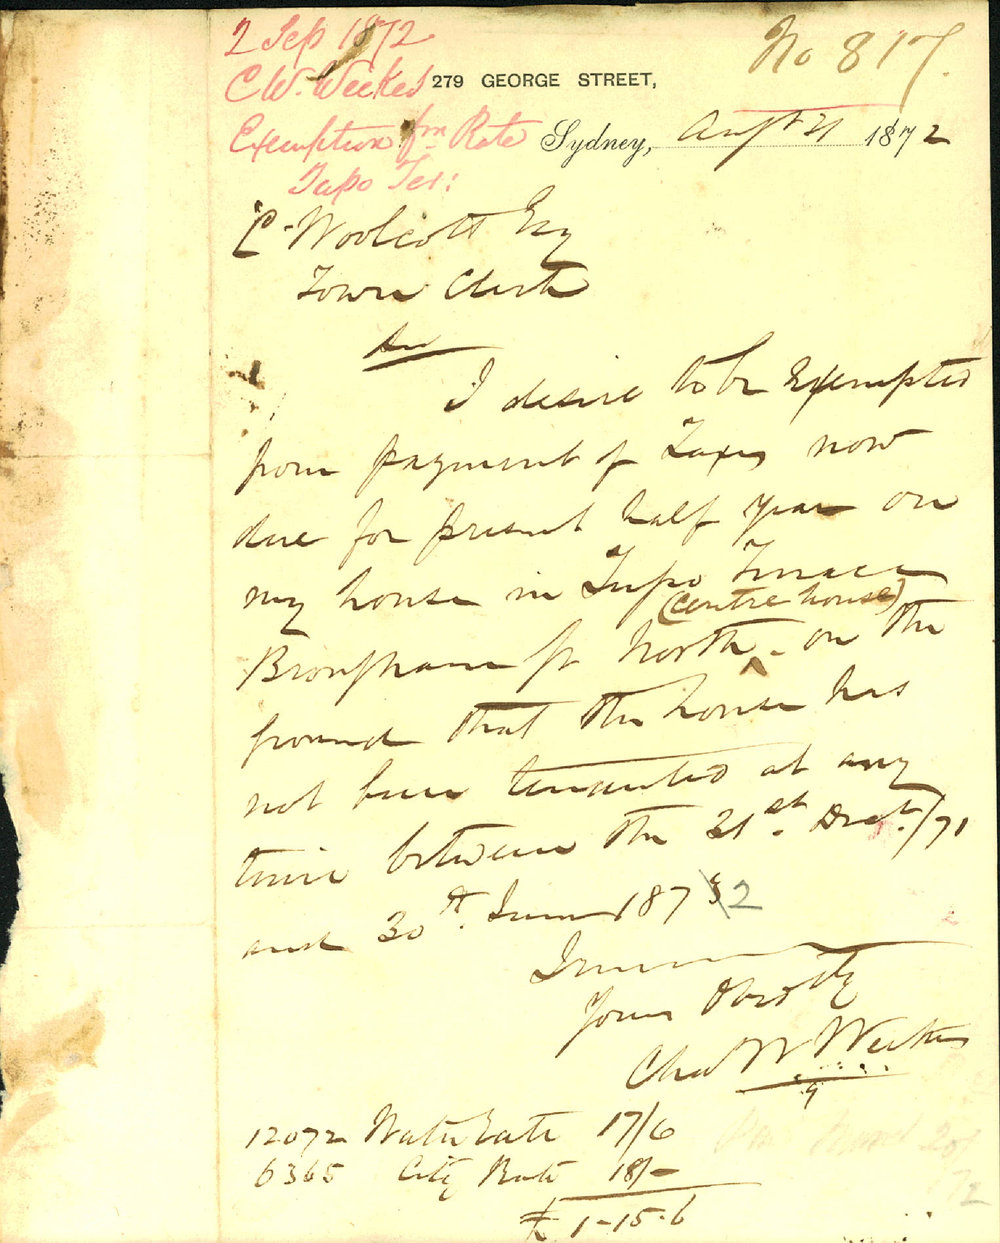 2 Sep 1872
No 817.
C W. Weekes
279 GEORGE STREET,
Exemption fm Rate
Sydney, Augt 21 1872
Tupo Ter:
C. Woolcott Esq
Town Clerk
Sir
I desire to be Exempted
from payment of Taxes now
due for present half year on
my house in Tupo Terrace
(centre house)
Brougham St North - on the
ground that the house has
not been tenanted at any
time between the 31st. Decr./71
and 30th. June 1873 2
I remain
Yours Obedtly
Chas W Weekes
12072 Water Rate 17/6
6365 City Rate 18/-
£ 1-15-6